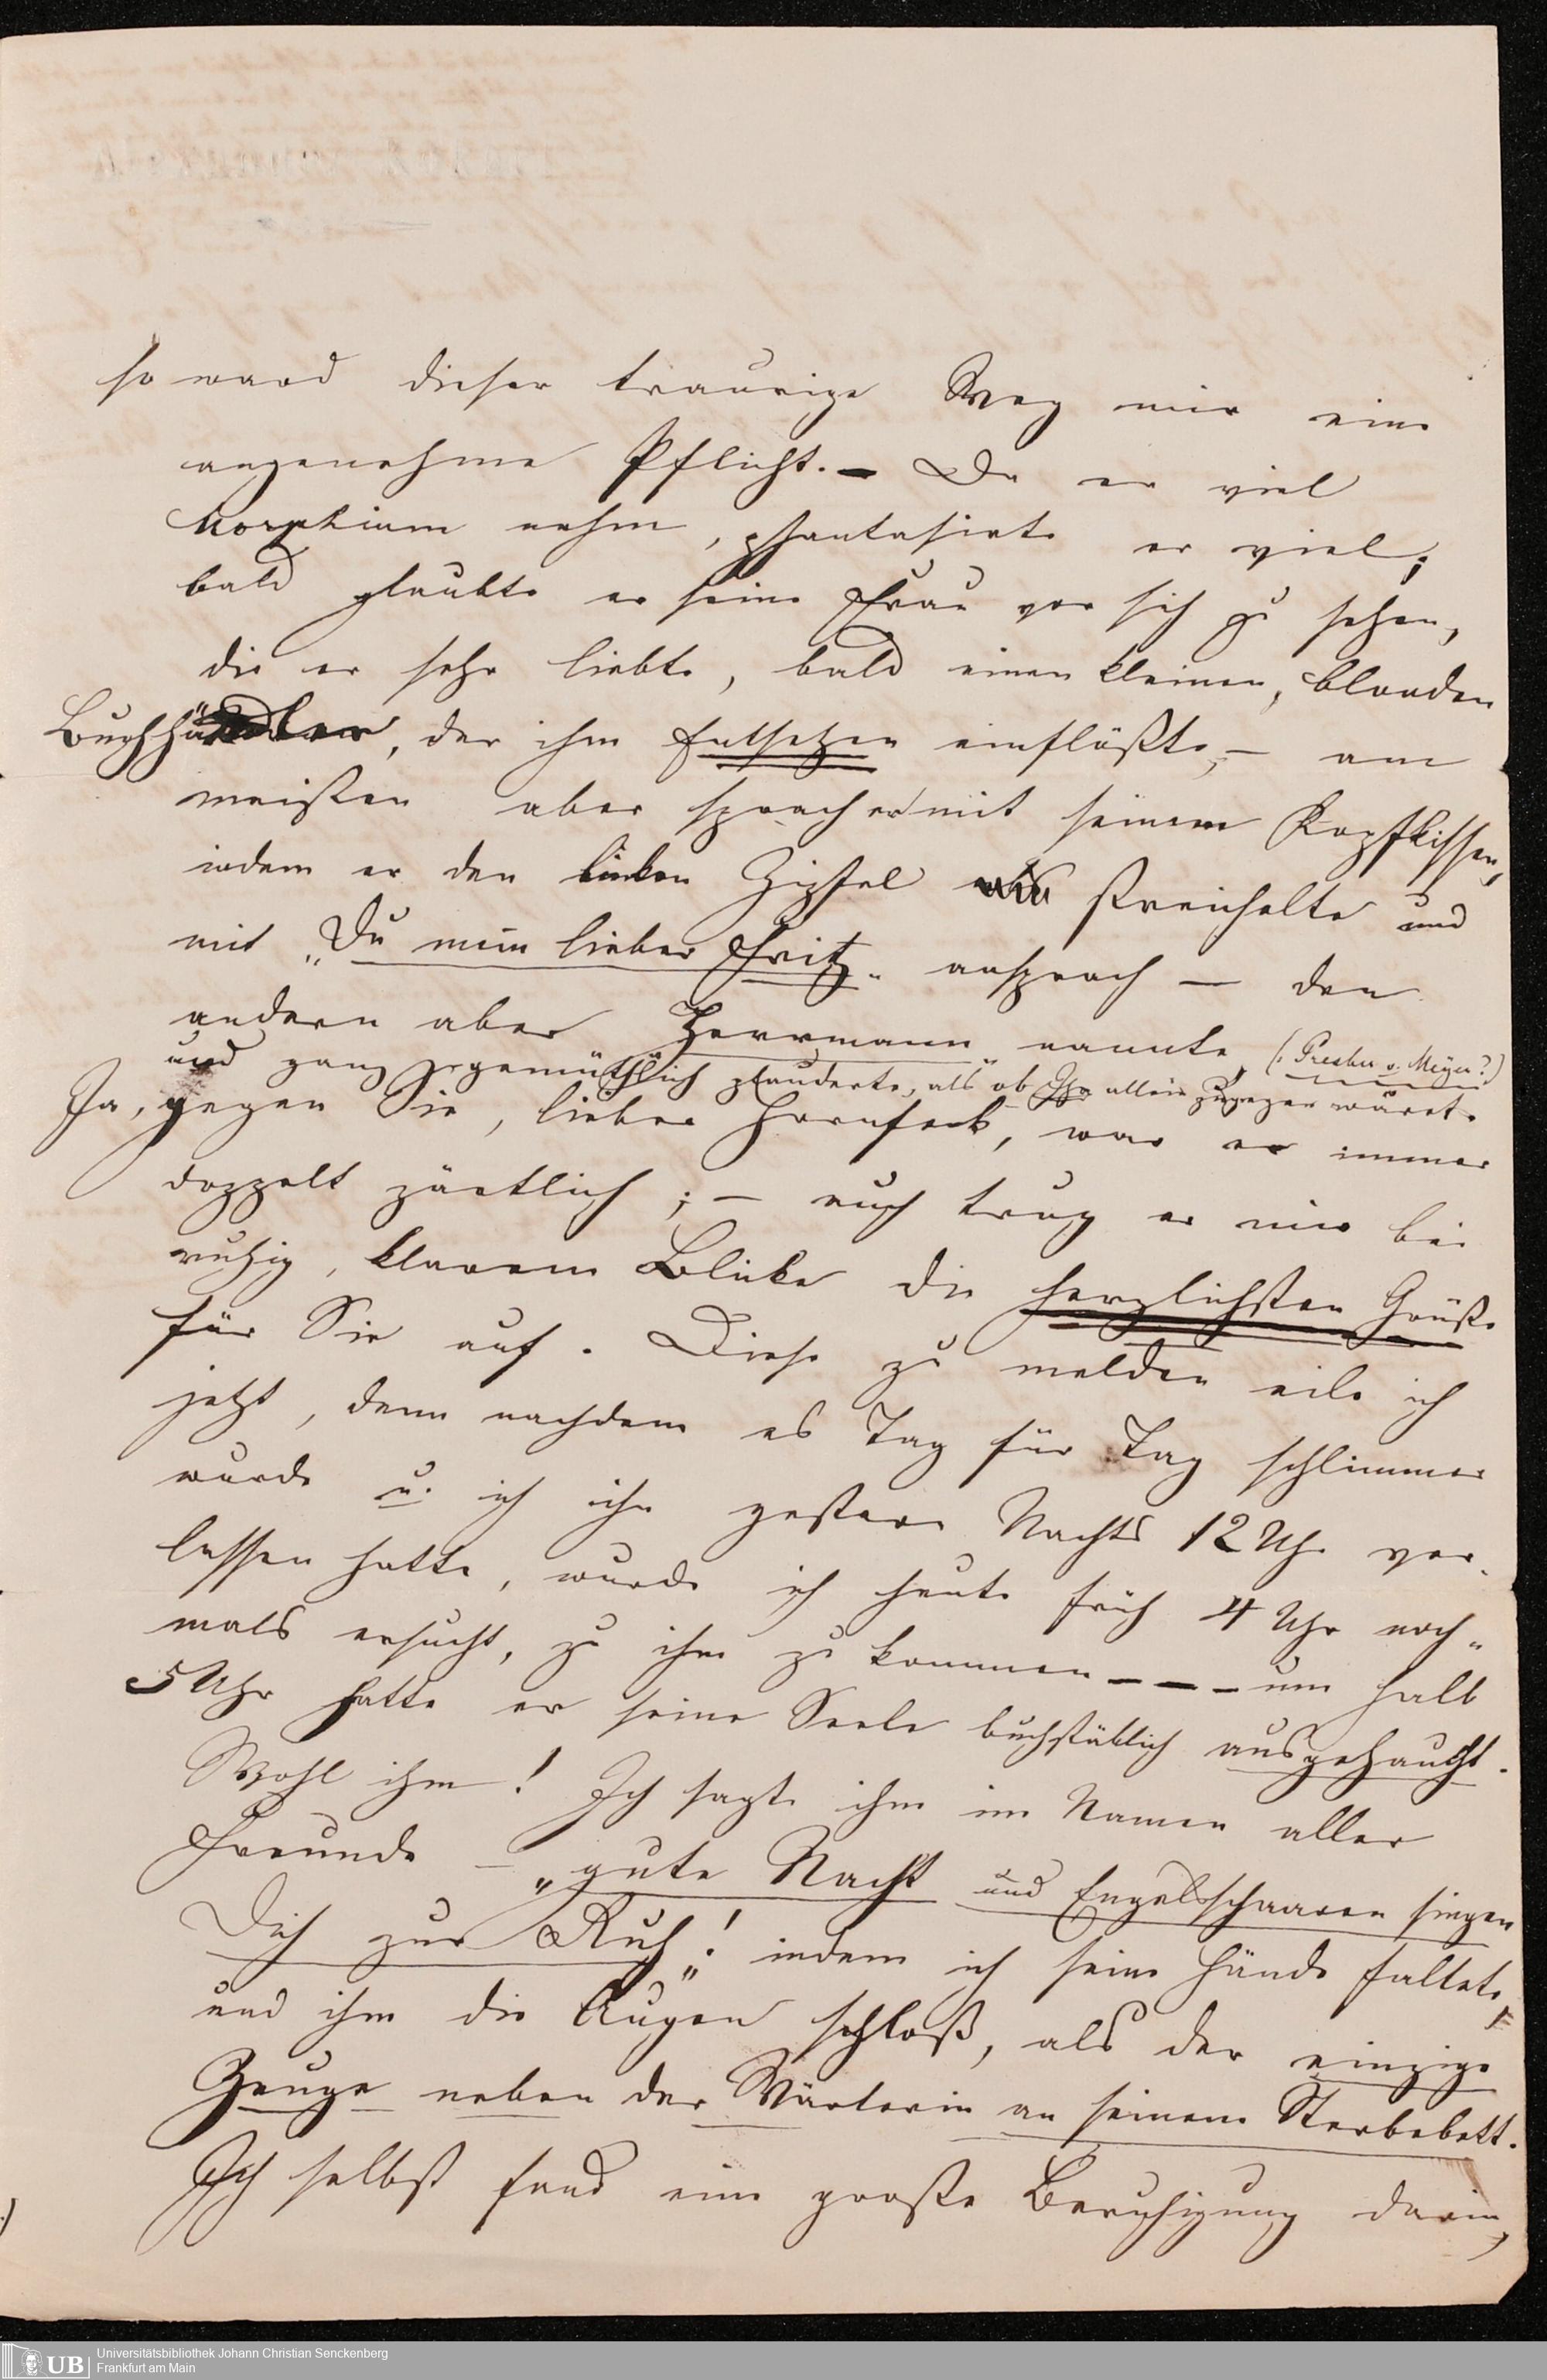 so ward dieser traurige Weg mir eine
angenehme Pflicht. – Da er viel
Morphium nahm, phantasirte er viel;
bald glaubte er seine Frau vor sich zu sehen,
die er sehr liebte, bald einen kleinen, blonden
Buchhändler, der ihm Entsetzen einflößte, – am
meisten aber sprach er mit seinem Kopfkissen,
indem er den linken Zipfel streichelte und
mit „Du mein lieber Fritz“ ansprach – den
andern aber Herrmann nannte, (: Presber v. Meyer? :)
und ganz gemüthlich plauderte, als ob Ihr allein zugegen wäret.
Ja, gegen Sie, lieber Hornfeck, war er immer
doppelt zärtlich; – auch trug er mir bei
ruhig, klarem Blicke die herzlichsten Grüße
für Sie auf. Diese zu melden eile ich
jetzt, denn nachdem es Tag für Tag schlimmer
wurde u. ich ihn gestern Nachts 12 Uhr ver-
lassen hatte, wurde ich heute früh 4 Uhr noch-
mals ersucht, zu ihm zu kommen – – – um halb
5 Uhr hatte er seine Seele buchstäblich ausgehaucht.
Wohl ihm! Ich sagte ihm im Namen aller
Freunde – „gute Nacht und Engelsschaaren singen
Dich zur Ruh“! indem ich seine Hände faltete,
und ihm die Augen schloß, als der einzige
Zeuge neben der Wärterin an seinem Sterbebett.
Ich selbst fand eine große Beruhigung darin,
UB Universitätsbibliothek Johann Christian Senckenberg
Frankfurt am Main